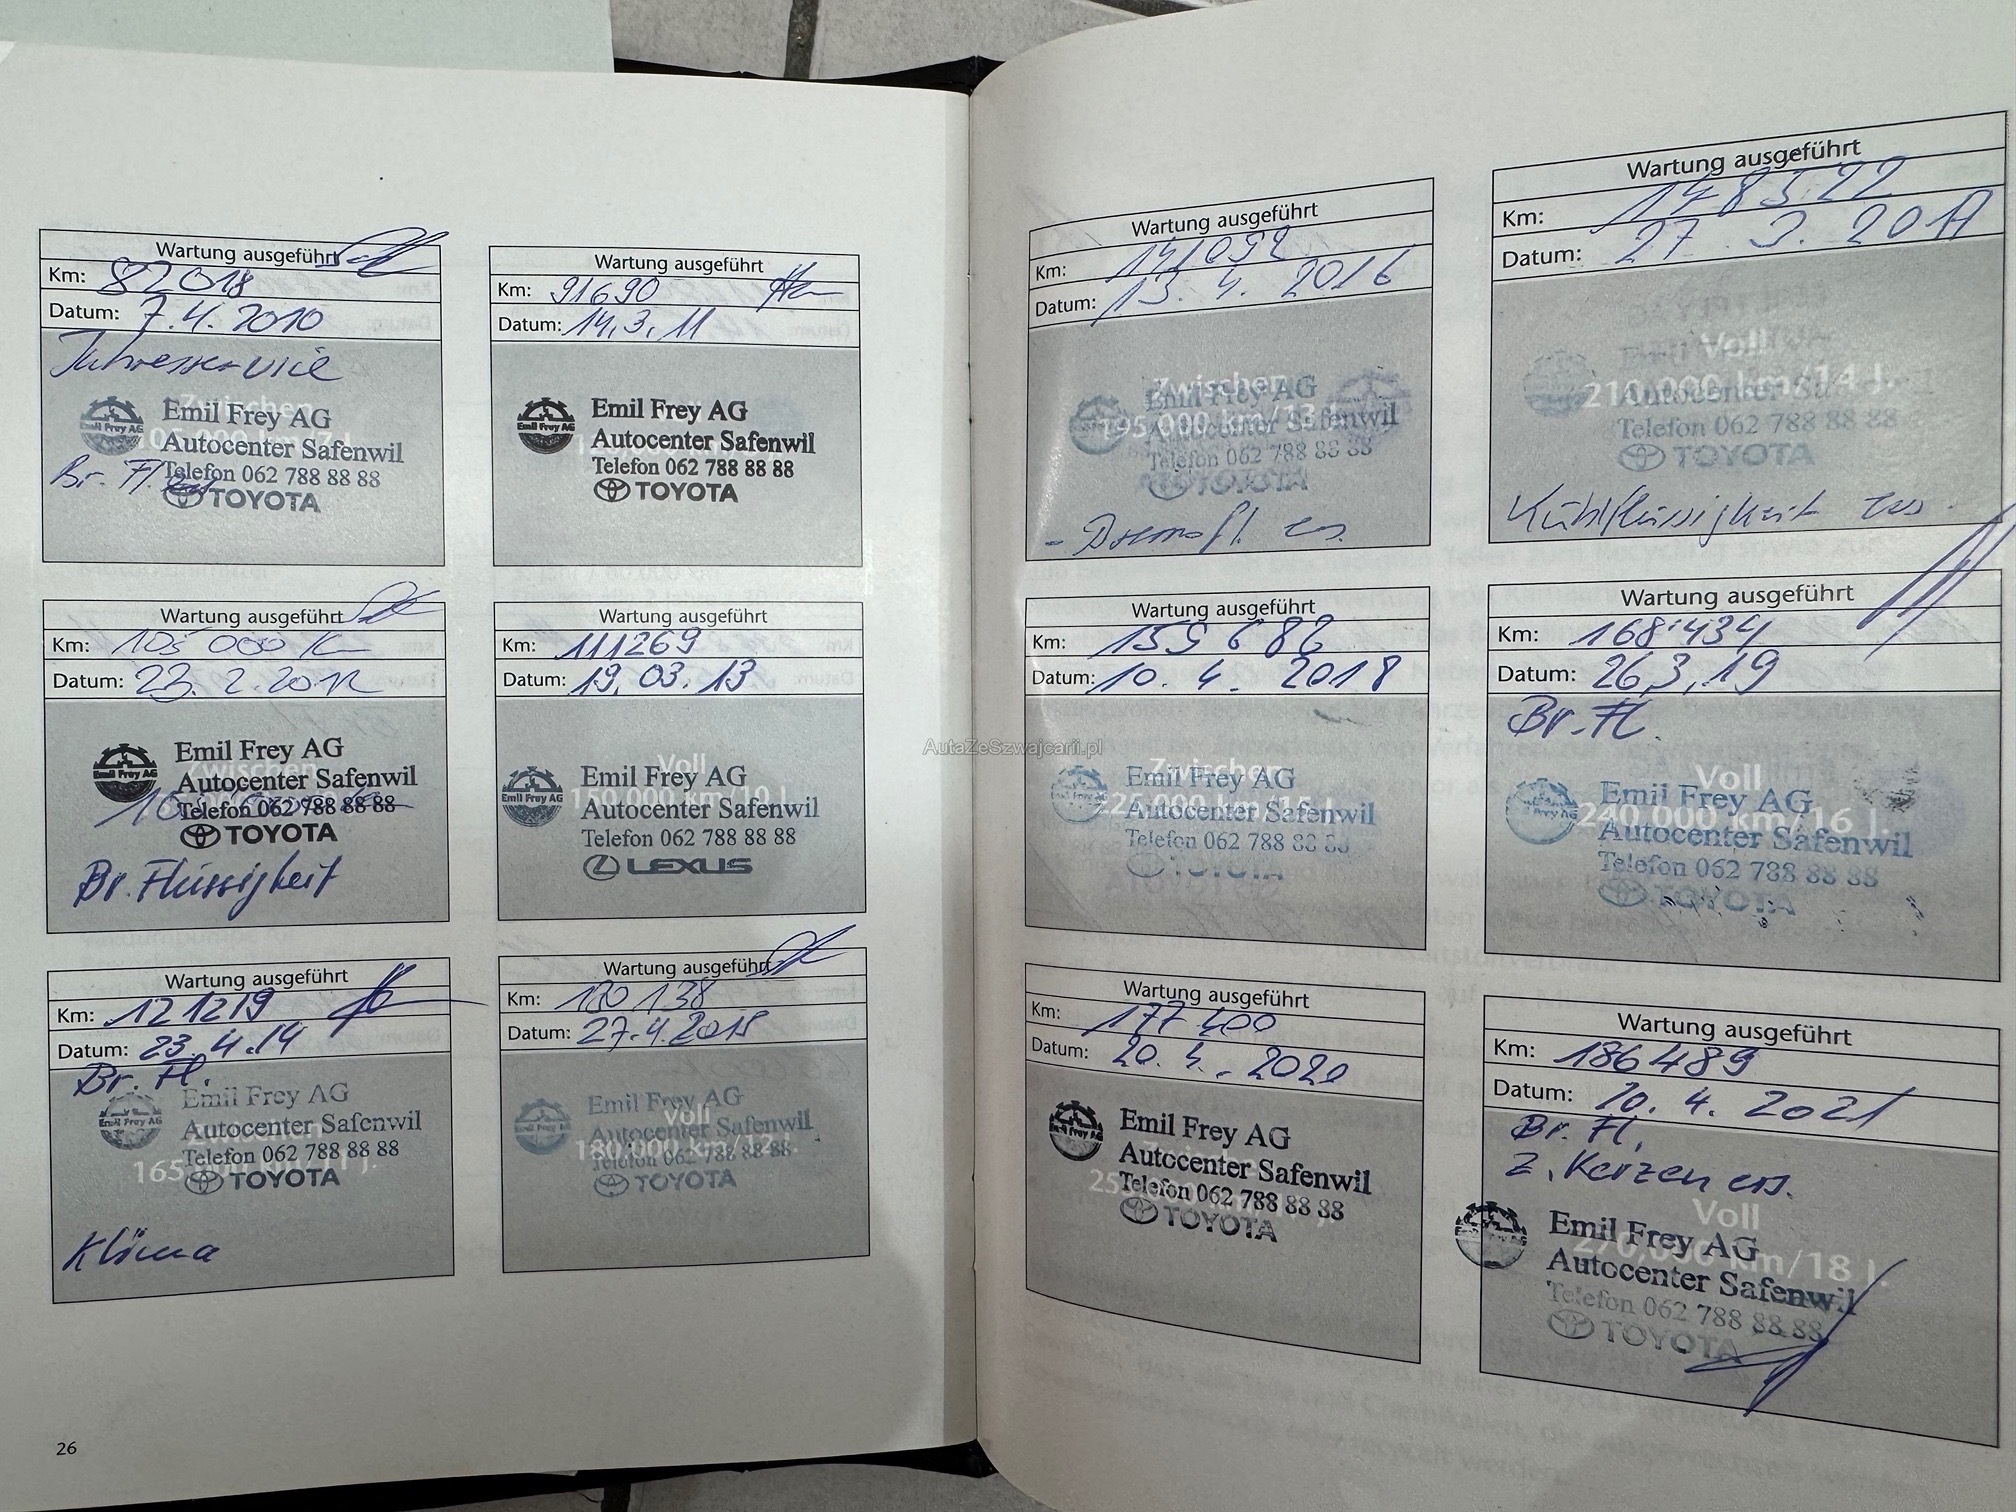 Wartung ausgeführt
Km: 82018
Datum: 7.4.2010
Jahresservice
Emil Frey AG
Autocenter Safenwil
Br. Fl.
Telefon 062 788 88 88
TOYOTA
Wartung ausgeführt
Km: 91690
Datum: 14.3.11
Emil Frey AG
Autocenter Safenwil
Telefon 062 788 88 88
TOYOTA
Wartung ausgeführt
Km: 105 000
Datum: 23.2.2012
Emil Frey AG
Zwischen
Autocenter Safenwil
Telefon 062 788 88 88
TOYOTA
Br. Flüssigkeit
Wartung ausgeführt
Km: 111269
Datum: 19.03.13
Voll
Emil Frey AG
150.000 km/10 J.
Autocenter Safenwil
Telefon 062 788 88 88
LEXUS
Wartung ausgeführt
Km: 121219
Datum: 23.4.14
Br. Fl.
Emil Frey AG
Autocenter Safenwil
Telefon 062 788 88 88
TOYOTA
Klima
Wartung ausgeführt
Km: 130 138
Datum: 27.4.2015
Emil Frey AG
Voll
Autocenter Safenwil
180.000 km/12 J.
Telefon 062 788 88 88
TOYOTA
26
Wartung ausgeführt
Km: 141092
Datum: 13. 4. 2016
Zwischen
Emil Frey AG
195.000 km/13
Autocenter Safenwil
Telefon 062 788 88 88
TOYOTA
- Bremsfl. ers.
Wartung ausgeführt
Km: 148522
Datum: 27. 3. 2017
Voll
210.000 km/14 J.
Autocenter
Telefon 062 788 88 88
TOYOTA
Kühlflüssigkeit ers.
Wartung ausgeführt
Km: 159 682
Datum: 10. 4. 2018
Zwischen
Emil Frey AG
225.000 km/15 J.
Autocenter Safenwil
Telefon 062 788 88 88
TOYOTA
Wartung ausgeführt
Km: 168'434
Datum: 26.3.19
Br. Fl.
Voll
Emil Frey AG
240.000 km/16 J.
Autocenter Safenwil
Telefon 062 788 88 88
TOYOTA
Wartung ausgeführt
Km: 177 400
Datum: 20. 4. 2020
Emil Frey AG
Autocenter Safenwil
Telefon 062 788 88 88
TOYOTA
Wartung ausgeführt
Km: 186489
Datum: 20. 4. 2021
Br. Fl.
Z. Kerzen ers.
Voll
Emil Frey AG
270.000 km/18 J.
Autocenter Safenwil
Telefon 062 788 88 88
TOYOTA
AutaZeSzwajcarii.pl